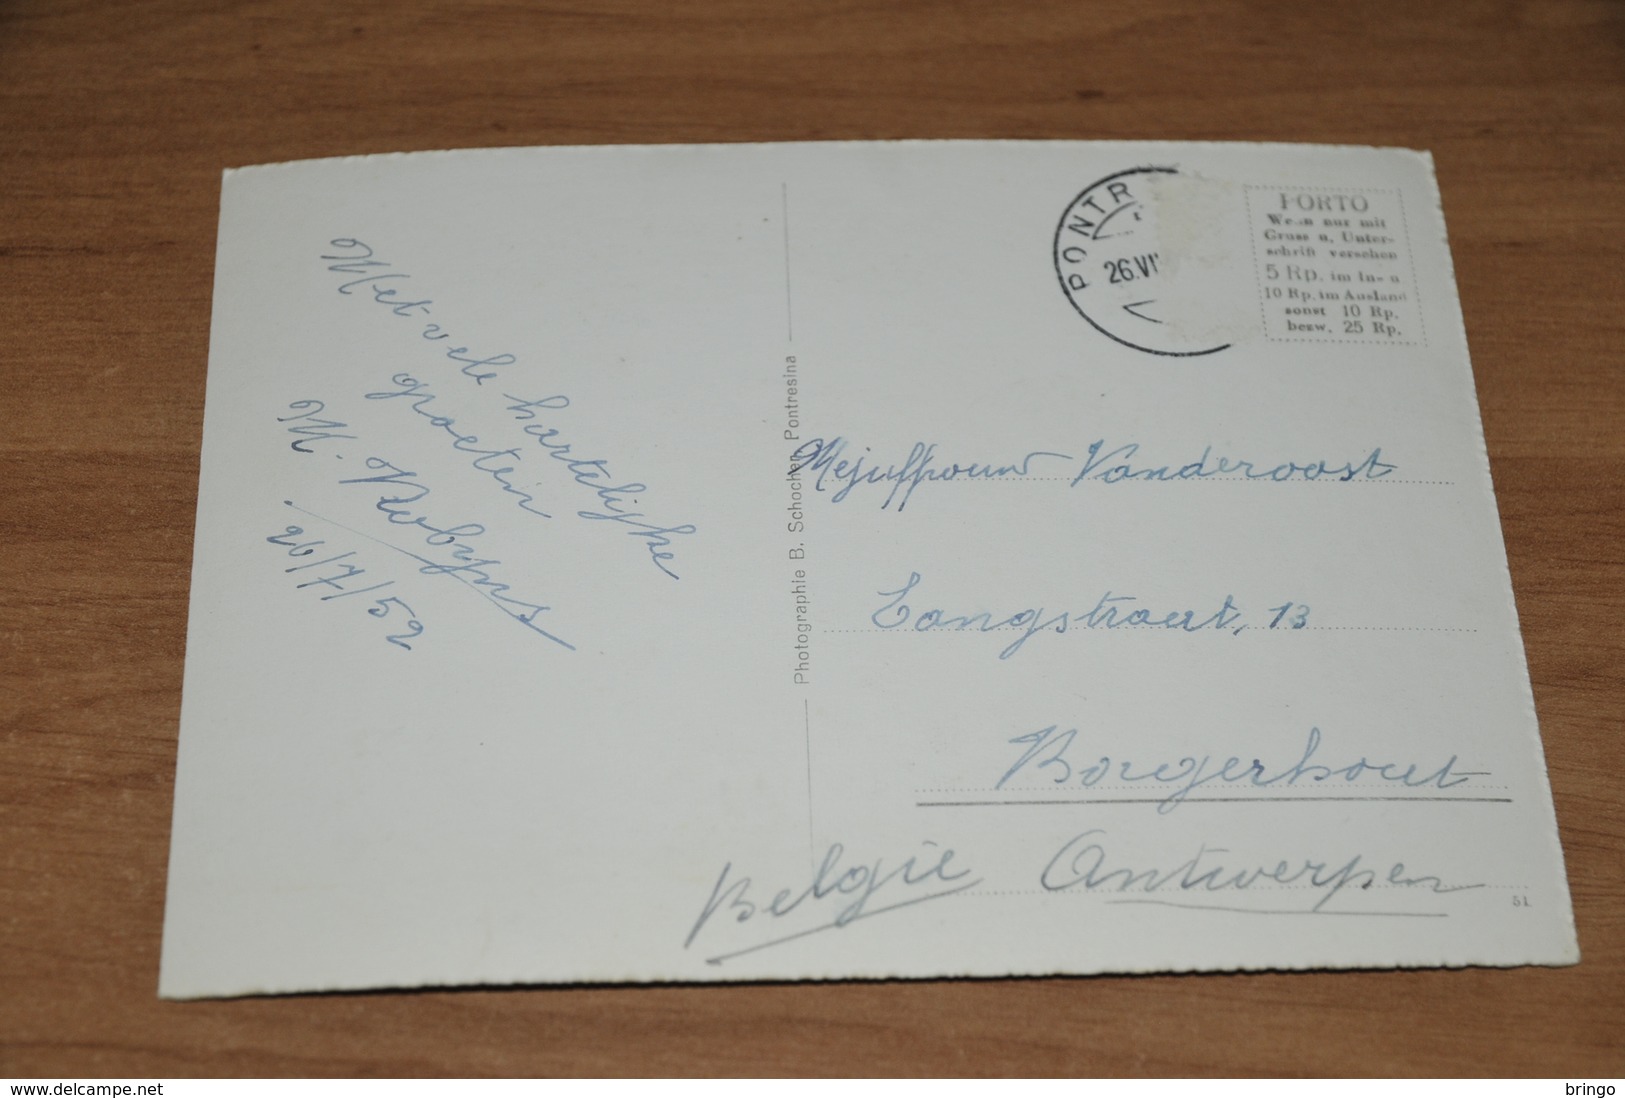 Met vele hartelijke
groeten
M. Robyns
26/7/52
Photographie B. Schocher, Pontresina
PONTR
26.VI
PORTO
Wenn nur mit
Gruss u. Unter-
schrift versehen
5 Rp. im In- u
10 Rp. im Ausland
sonst 10 Rp.
bezw. 25 Rp.
Mejuffrouw Vanderoost
Langstraat, 13
Borgerhout
België Antwerpen
51
delcampe.net
bringo